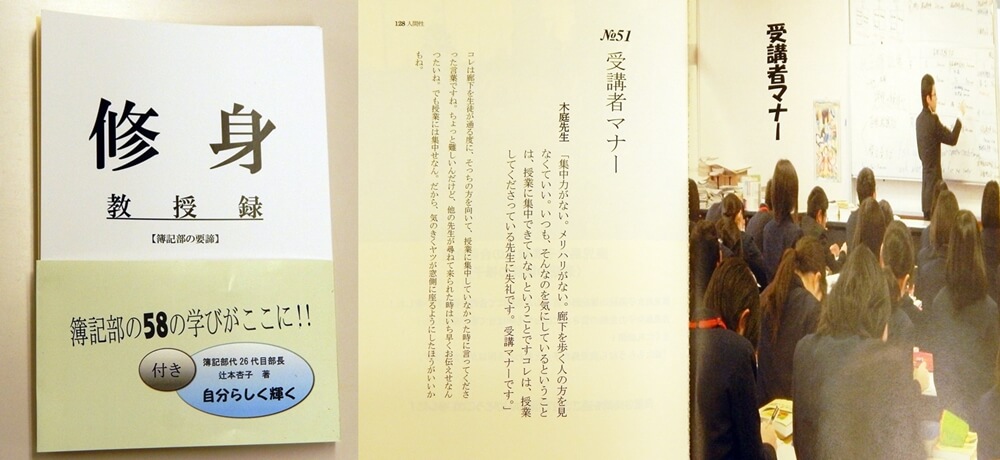 修身
教授録
【簿記部の要諦】
簿記部の58の学びがここに!!
付き
簿記部代26代目部長
辻本杏子 著
自分らしく輝く
128 人間性
№51
受講者マナー
木庭先生
「集中力がない。メリハリがない。廊下を歩く人の方を見
なくていい。いつも、そんなのを気にしているということ
は、授業に集中できていないということですコレは、授業
してくださっている先生に失礼です。受講マナーです。」
コレは廊下を生徒が通る度に、そっちの方を向いて、授業に集中していなかった時に言ってくださ
った言葉ですね。ちょっと難しいんだけど、他の先生が尋ねて来られた時はいち早くお伝えせなん
つたいね。でも授業には集中せなん。だから、気のきくヤツが窓側に座るようにしたほうがいいか
もね。
受講者マナー